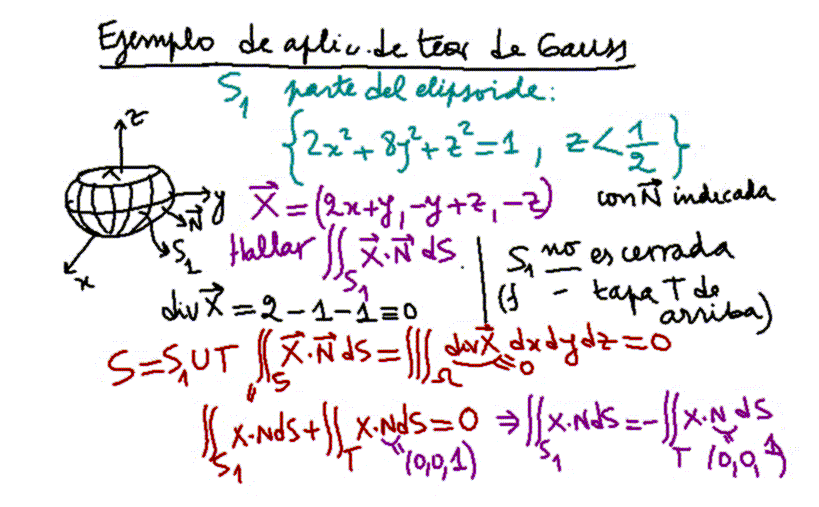 Ejemplo de aplic. de teor de Gauss
S₁ parte del elipsoide:
{2x² + 8y² + z² = 1 , z < 1/2}
z
y
N⃗
S₁
x
X⃗ = (2x+y, -y+z, -z)
con N⃗ indicada
Hallar ∬_S₁ X⃗·N⃗ dS.
S₁ no es cerrada
(∫ - tapa T de
arriba)
div X⃗ = 2 - 1 - 1 ≡ 0
S = S₁ U T ∬_S X⃗·N⃗ dS = ∭_Ω div X⃗ dx dy dz = 0
= 0
∬_S₁ X·N dS + ∬_T X·N dS = 0 ⇒ ∬_S₁ X·N dS = - ∬_T X·N dS
(0,0,1) (0,0,1)